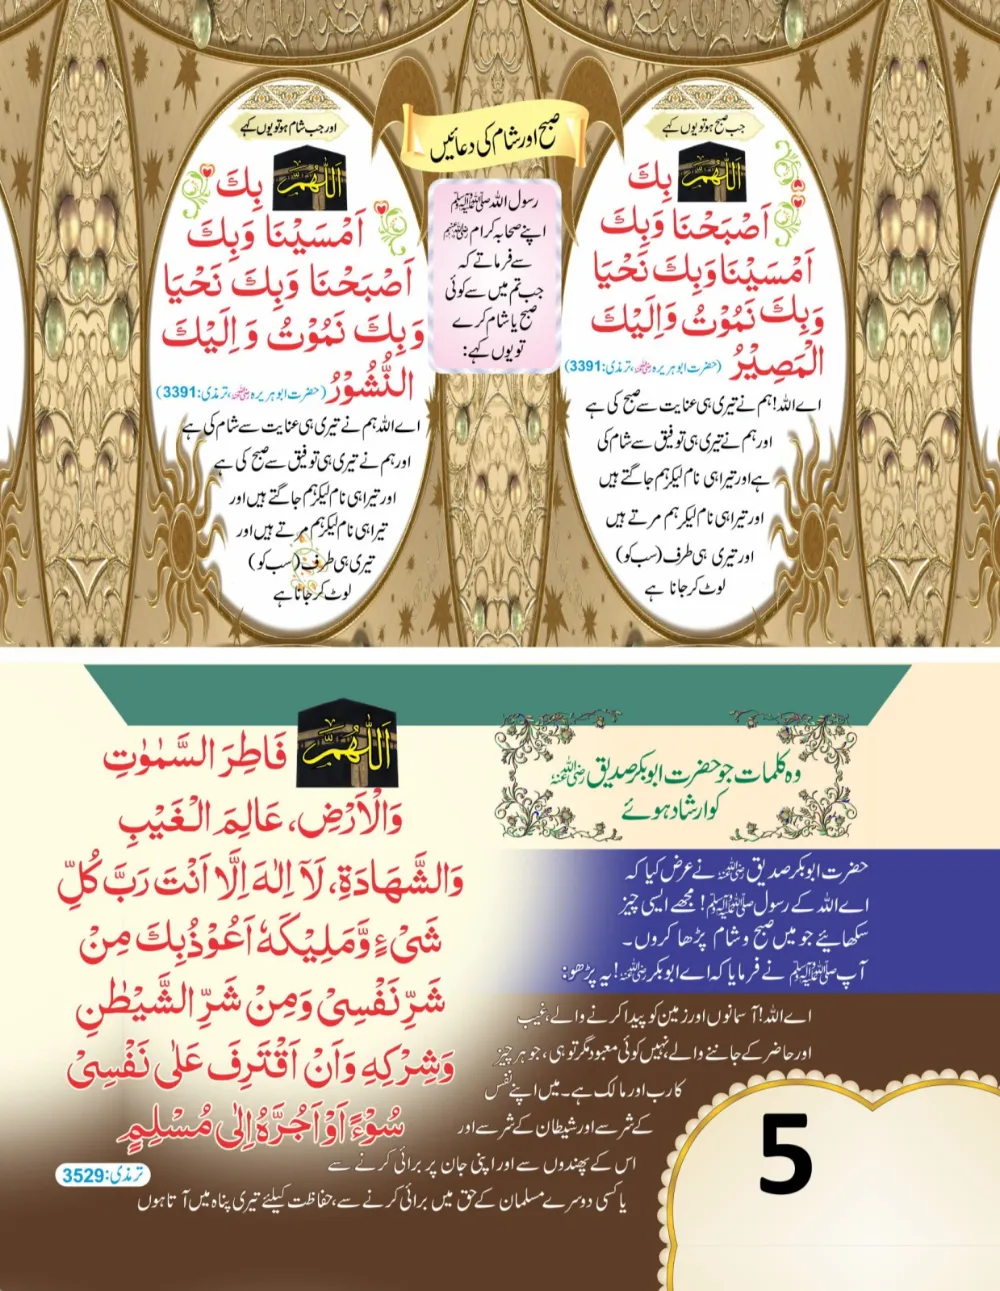 صبح اور شام کی دعائیں
رسول اللہ ﷺ
اپنے صحابہ کرام رضی اللہ عنہم
سے فرماتے کہ
جب تم میں سے کوئی
صبح یا شام کرے
تو یوں کہے:
جب صبح ہو تو یوں کہے
اَللّٰهُمَّ بِكَ
اَصْبَحْنَا وَبِكَ
اَمْسَيْنَا وَبِكَ نَحْيَا
وَبِكَ نَمُوْتُ وَاِلَيْكَ
الْمَصِيْرُ (حضرت ابو ہریرہ رضی اللہ عنہ، ترمذی:3391)
اے اللہ! ہم نے تیری ہی عنایت سے صبح کی ہے
اور ہم نے تیری ہی توفیق سے شام کی
ہے اور تیرا ہی نام لیکر ہم جاگتے ہیں
اور تیرا ہی نام لیکر ہم مرتے ہیں
اور تیری ہی طرف (سب کو)
لوٹ کر جانا ہے
اور جب شام ہو تو یوں کہے
اَللّٰهُمَّ بِكَ
اَمْسَيْنَا وَبِكَ
اَصْبَحْنَا وَبِكَ نَحْيَا
وَبِكَ نَمُوْتُ وَاِلَيْكَ
النُّشُوْرُ (حضرت ابو ہریرہ رضی اللہ عنہ، ترمذی:3391)
اے اللہ ہم نے تیری ہی عنایت سے شام کی ہے
اور ہم نے تیری ہی توفیق سے صبح کی ہے
اور تیرا ہی نام لیکر ہم جاگتے ہیں اور
تیرا ہی نام لیکر ہم مرتے ہیں اور
تیری ہی طرف (سب کو)
لوٹ کر جانا ہے
وہ کلمات جو حضرت ابوبکر صدیق رضی اللہ عنہ
کو ارشاد ہوئے
حضرت ابوبکر صدیق رضی اللہ عنہ نے عرض کیا کہ
اے اللہ کے رسول ﷺ! مجھے ایسی چیز
سکھایئے جو میں صبح و شام پڑھا کروں۔
آپ ﷺ نے فرمایا کہ اے ابوبکر رضی اللہ عنہ! یہ پڑھو:
اَللّٰهُمَّ فَاطِرَ السَّمٰوٰتِ
وَالْاَرْضِ، عَالِمَ الْغَيْبِ
وَالشَّهَادَةِ، لَآ اِلٰهَ اِلَّا اَنْتَ رَبَّ كُلِّ
شَیْءٍ وَّمَلِيْكَهٗ اَعُوْذُ بِكَ مِنْ
شَرِّ نَفْسِیْ وَمِنْ شَرِّ الشَّيْطٰنِ
وَشِرْكِهٖ وَاَنْ اَقْتَرِفَ عَلٰی نَفْسِیْ
سُوْٓءً اَوْ اَجُرَّهٗ اِلٰی مُسْلِمٍ
ترمذی:3529
اے اللہ! آسمانوں اور زمین کو پیدا کرنے والے، غیب
اور حاضر کے جاننے والے، نہیں کوئی معبود مگر تو ہی، جو ہر چیز
کا رب اور مالک ہے۔ میں اپنے نفس
کے شر سے اور شیطان کے شر سے اور
اس کے پھندوں سے اور اپنی جان پر برائی کرنے سے
یا کسی دوسرے مسلمان کے حق میں برائی کرنے سے، حفاظت کیلئے تیری پناہ میں آتا ہوں
5